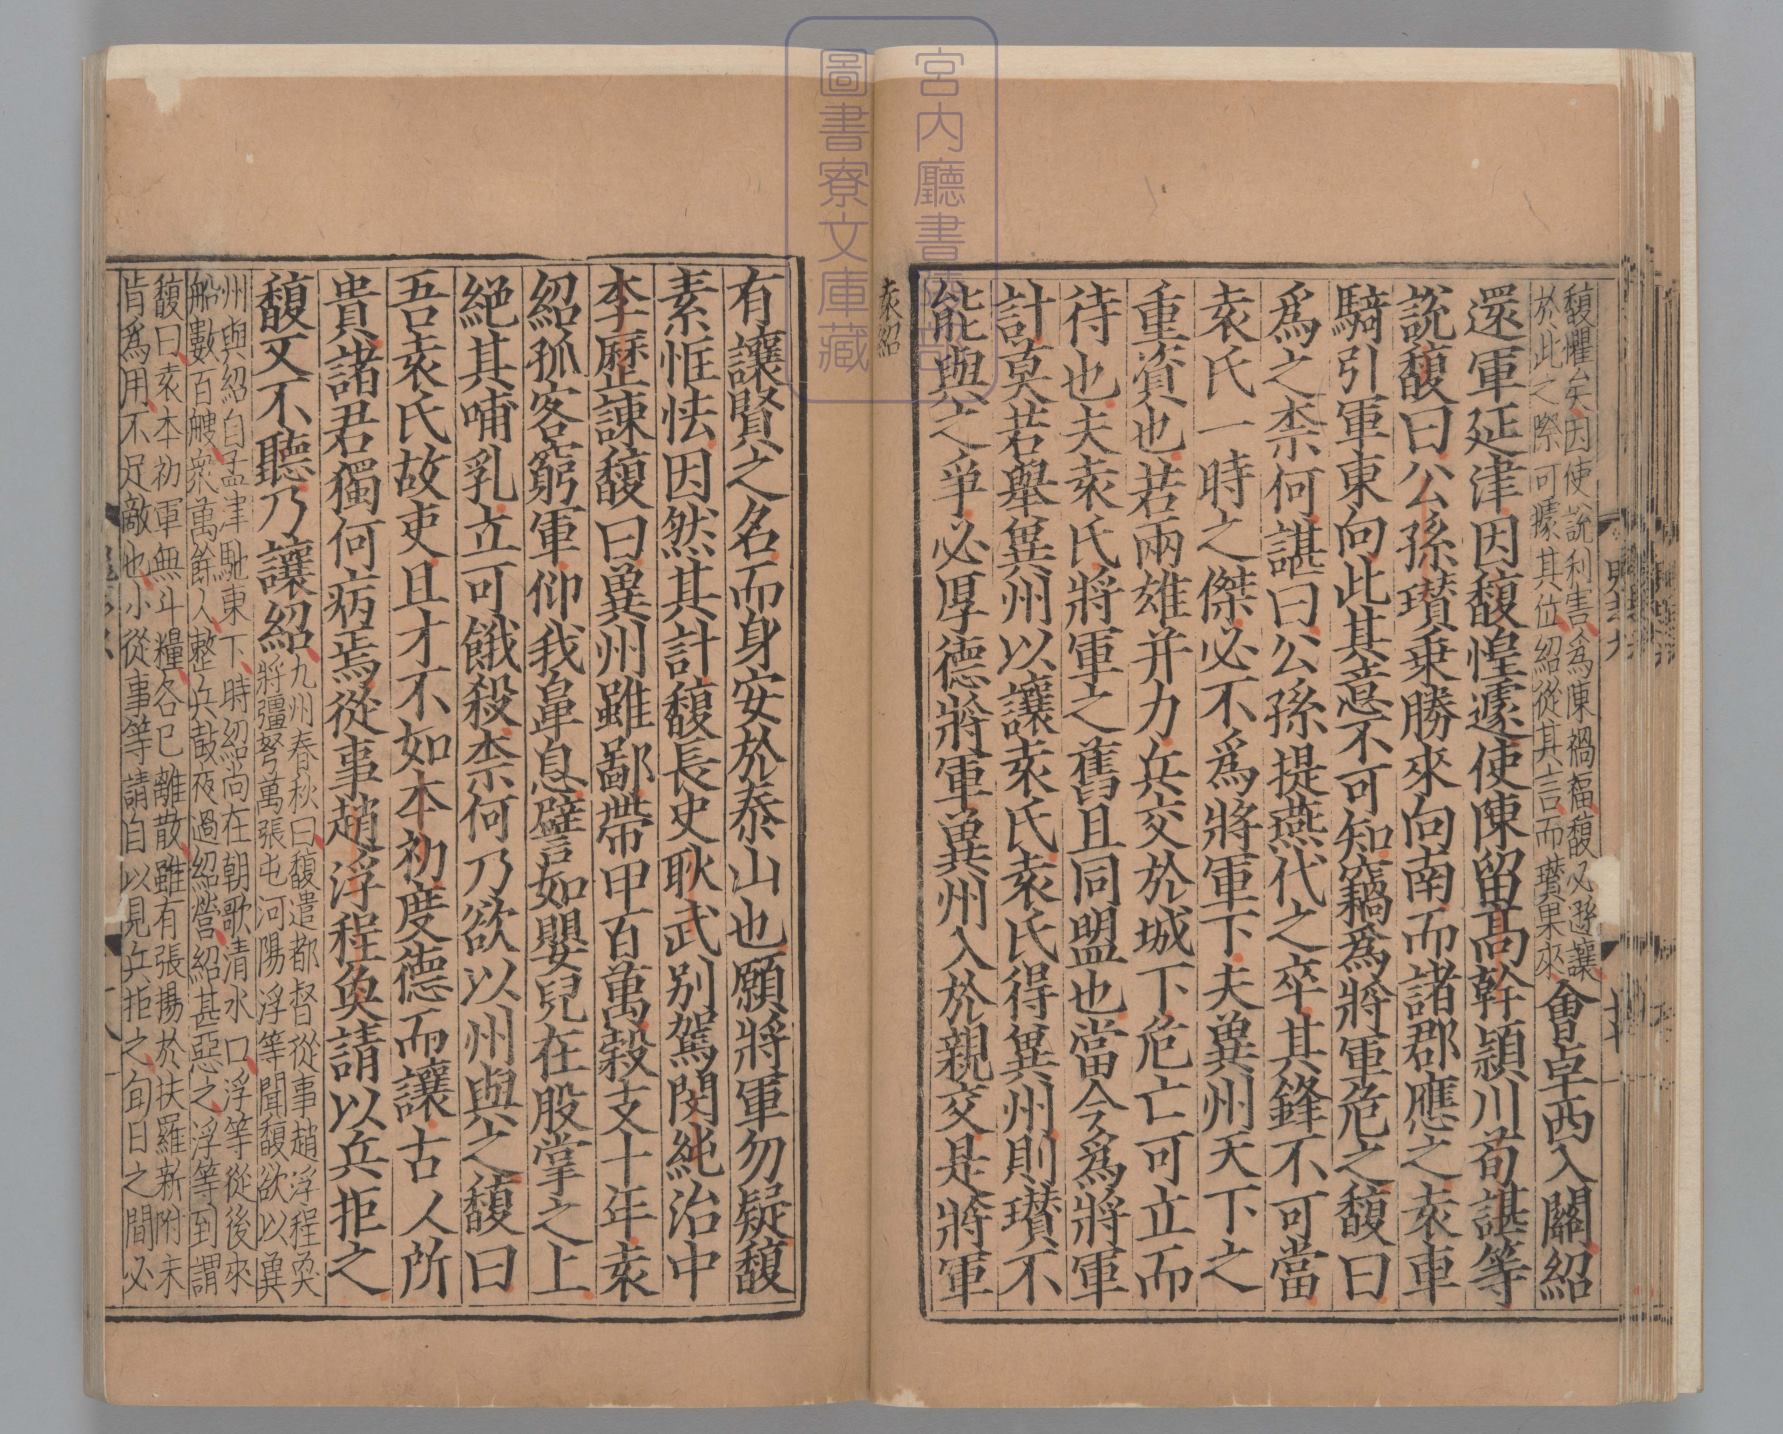 馥懼矣因使說利害為陳禍福馥必遜讓
於此之際可據其位紹從其言而瓚果來
會卓西入關紹
還軍延津因馥惶遽使陳留高幹潁川荀諶等
說馥曰公孫瓚乗勝來向南而諸郡應之袁車
騎引軍東向此其意不可知竊為將軍危之馥曰
為之柰何諶曰公孫提燕代之卒其鋒不可當
袁氏一時之傑必不為將軍下夫兾州天下之
重資也若兩雄并力兵交於城下危亡可立而
待也夫袁氏將軍之舊且同盟也當今為將軍
計莫若舉兾州以讓袁氏袁氏得兾州則瓚不
能與之爭必厚德將軍兾州入於親交是將軍
袁紹
有讓賢之名而身安於泰山也願將軍勿疑馥
素恇怯因然其計馥長史耿武別駕閔純治中
李歷諫馥曰兾州雖鄙帶甲百萬穀支十年袁
紹孤客窮軍仰我鼻息譬如嬰兒在股掌之上
絕其哺乳立可餓殺柰何乃欲以州與之馥曰
吾袁氏故吏且才不如本初度德而讓古人所
貴諸君獨何病焉從事趙浮程奐請以兵拒之
馥又不聽乃讓紹
九州春秋曰馥遣都督從事趙浮程奐
將彊弩萬張屯河陽浮等聞馥欲以兾
州與紹自孟津馳東下時紹尚在朝歌清水口浮等從後來
船數百艘衆萬餘人整兵鼓夜過紹營紹甚惡之浮等到謂
馥曰袁本初軍無斗糧各已離散雖有張揚於扶羅新附未
肯為用不足敵也小從事等請自以見兵拒之旬日之間必
宮内廳書陵部
圖書寮文庫藏